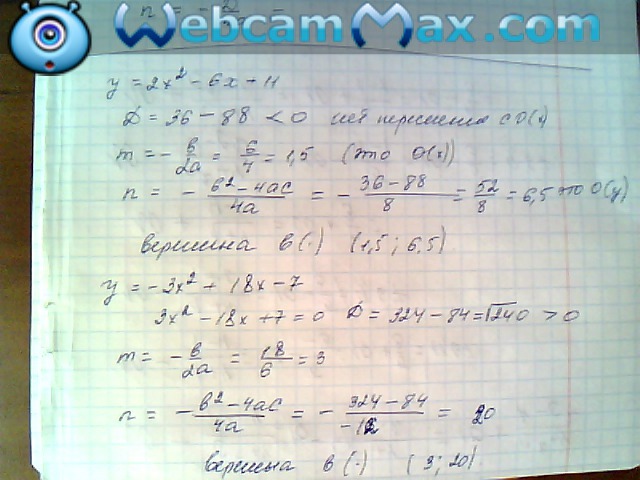 WebcamMax.com
n = - 
y = 2x² - 6x + 11
D = 36 - 88 < 0 нет пересечения с O(x)
m = - b/2a = 6/4 = 1,5 (это O(x))
n = - b² - 4ac/4a = - 36 - 88/8 = 52/8 = 6,5 это O(y)
вершина в (·) (1,5 ; 6,5)
y = -3x² + 18x - 7
3x² - 18x + 7 = 0 D = 324 - 84 = √240 > 0
m = - b/2a = 18/6 = 3
n = - b² - 4ac/4a = - 324 - 84/-12 = 20
вершина в (·) (3 ; 20)